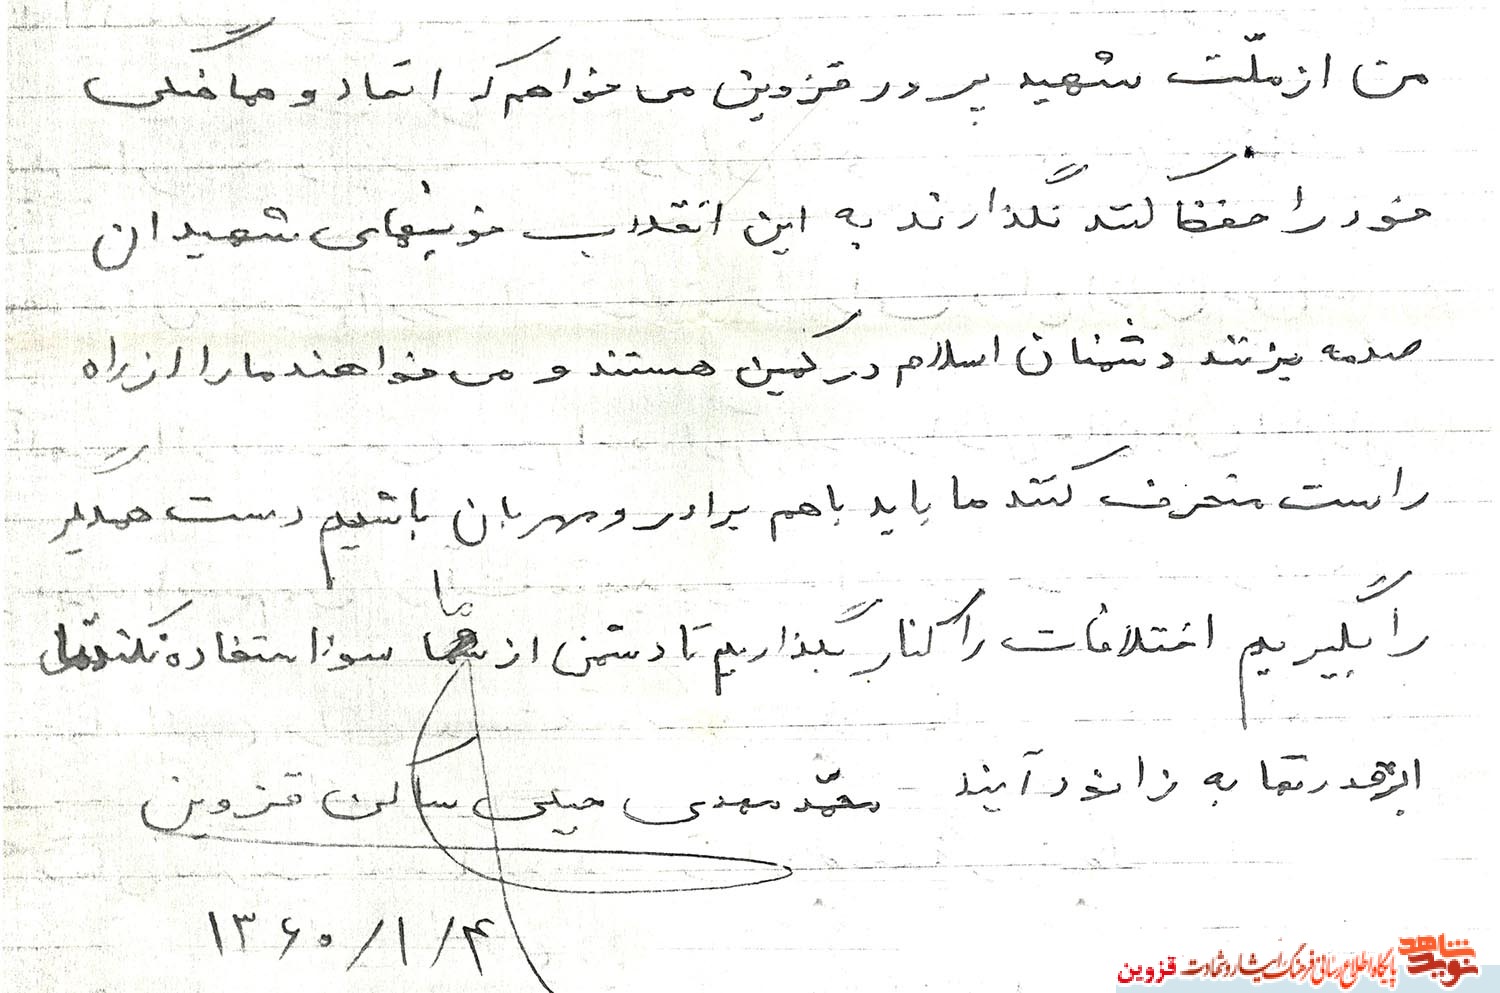 من از ملّت شهید پرور قزوین می خواهم که اتحاد و هماهنگی
خود را حفظ کنند نگذارند به این انقلاب خونینهای شهیدان
صدمه بزنند دشمنان اسلام در کمین هستند و می خواهند ما را از راه
راست منحرف کنند ما باید باهم برادر و مهربان باشیم دست همدیگر
را بگیریم اختلافات را کنار بگذاریم تا دشمن از ما سوء استفاده نکند
ابرقدرتها به زانو در آیند محمّد مهدی ساکن قزوین
۱۳۶۰/۱/۴
نوید شاهد پایگاه اطلاع رسانی فرهنگ ایثار و شهادت قزوین